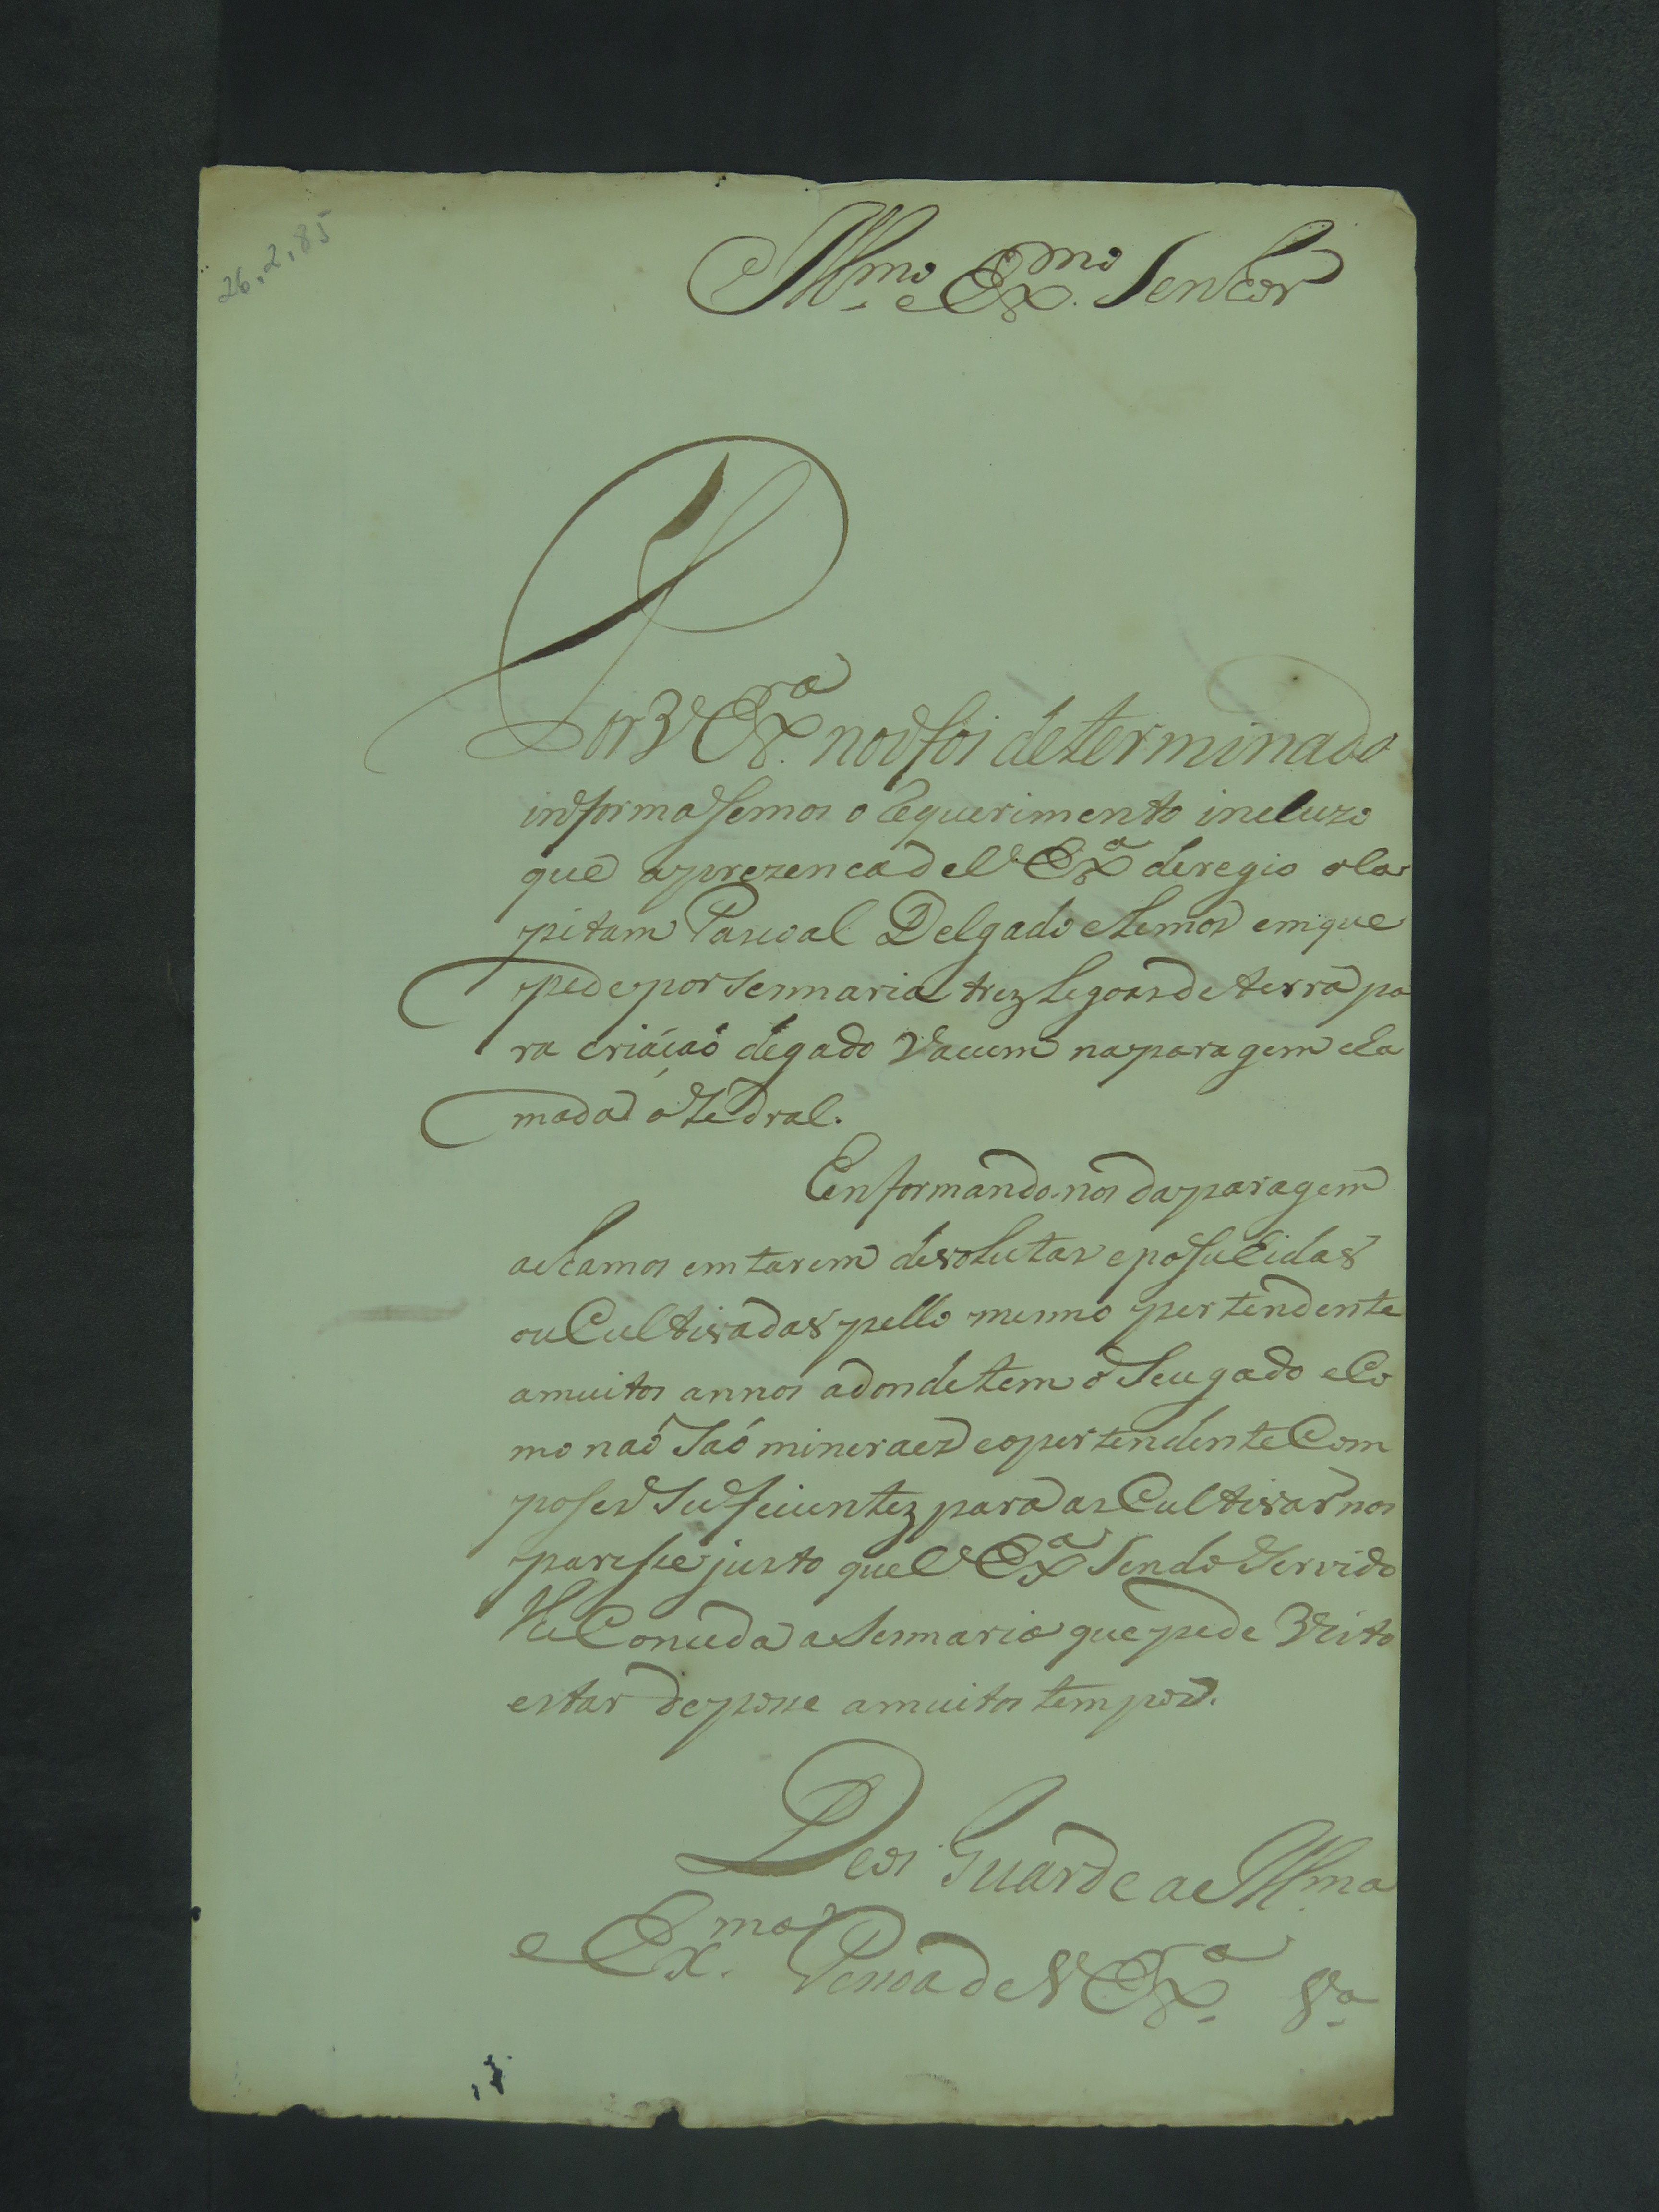 26.2,85
Illmo e Exmo Senhor
Por V Exra nos foi determinado
informasemos o Requerimento incluzo
que aprezenca de V Exa deregio o Ca
pitam Pascoal Delgado e Lemos em que
pede por Sesmaria trez Legoas de terra pa
ra criácaó degado Vacum naparagem cha
mada o
Enformandonos daparagem
achamos emtarem desolutas eposuhidas
ou Cultivadas pello mesmo pertendente
amuitos annos adondetem o Seugado e Co
mo naó Saó mineraes eopertendente Com
poses Suficientez para as Cultivar nos
paresse justo que V Exa Sendo Servido
lhe Conceda a Sesmaria que pede Visto
estar deposse amuitos tempos.
Deos Guarde a Illma
e Exma Pessoa de V Exra